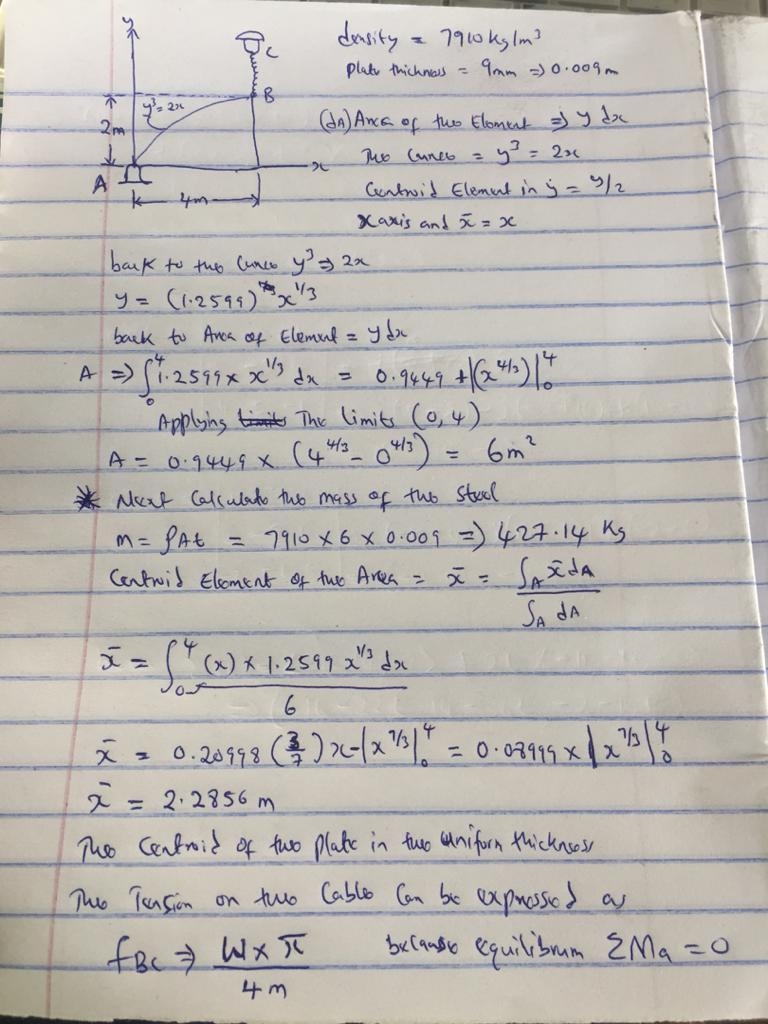 y
C
B
y³ = 2x
2m
A
4m
x
density = 7910 kg/m³
Plate thickness = 9mm => 0.009m
(dA) Area of the Element => y dx
The Curve = y³ = 2x
Centroid Element in ȳ = y/2
x axis and x̄ = x
back to the Curve y³ => 2x
y = (1.2599) x^1/3
back to Area of Element = y dx
A => ∫₀⁴ 1.2599 x x^1/3 dx = 0.9449 + |(x^4/3)|₀⁴
Applying Limits The limits (0, 4)
A = 0.9449 x (4^4/3 - 0^4/3) = 6m²
* Next Calculate the mass of the Steel
m = ρAt = 7910 x 6 x 0.009 => 427.14 Kg
Centroid Element of the Area = x̄ = ∫A x̄ dA / ∫A dA
x̄ = ∫₀⁴ (x) x 1.2599 x^1/3 dx / 6
x̄ = 0.20998 (3/7) x - |x^7/3|₀⁴ = 0.08999 x |x^7/3|₀⁴
x̄ = 2.2856 m
The Centroid of the Plate in the Uniform thickness
The Tension on the Cable Can be expressed as
fBC => W x x̄ / 4m because equilibrum ΣMa = 0